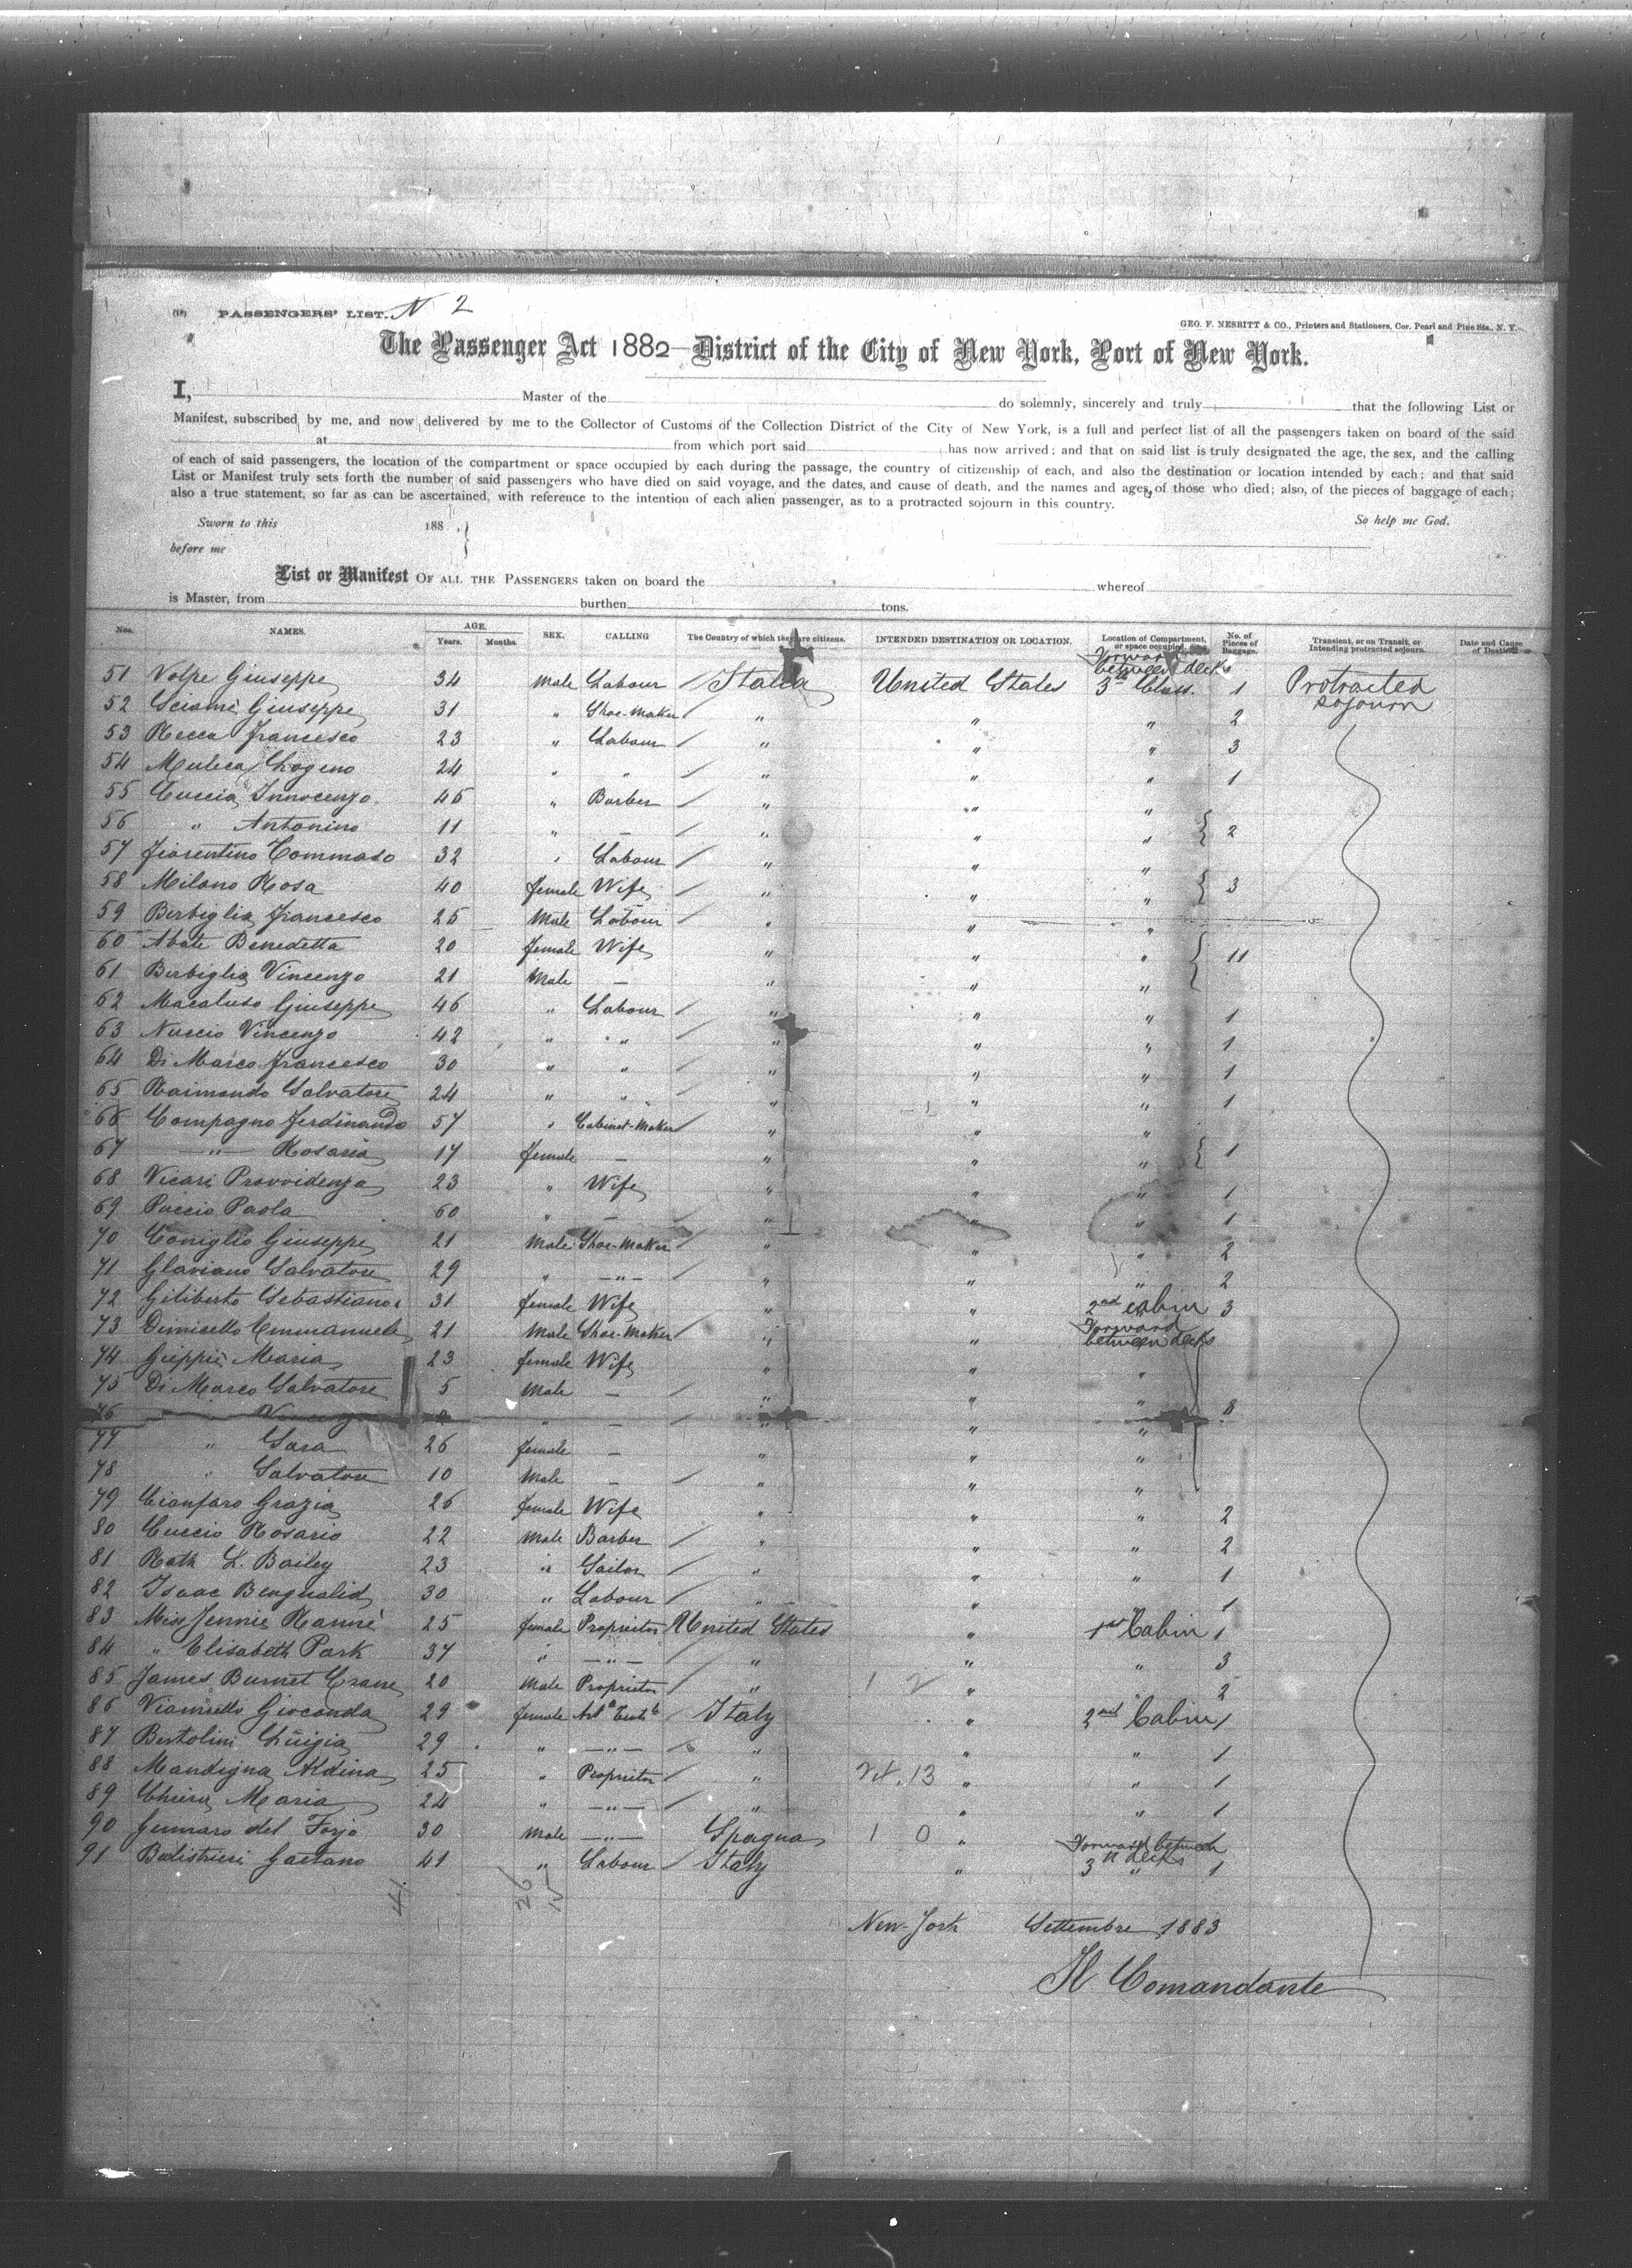 (18) PASSENGERS' LIST. N 2
GEO. F. NESBITT & CO., Printers and Stationers, Cor. Pearl and Pine Sts., N. Y.
The Passenger Act 1882 District of the City of New York, Port of New York.
I, Master of the do solemnly, sincerely and truly that the following List or
Manifest, subscribed by me, and now delivered by me to the Collector of Customs of the Collection District of the City of New York, is a full and perfect list of all the passengers taken on board of the said
at from which port said has now arrived; and that on said list is truly designated the age, the sex, and the calling
of each of said passengers, the location of the compartment or space occupied by each during the passage, the country of citizenship of each, and also the destination or location intended by each; and that said
List or Manifest truly sets forth the number of said passengers who have died on said voyage, and the dates, and cause of death, and the names and ages, of those who died; also, of the pieces of baggage of each;
also a true statement, so far as can be ascertained, with reference to the intention of each alien passenger, as to a protracted sojourn in this country.
Sworn to this 188 So help me God.
before me
List or Manifest OF ALL THE PASSENGERS taken on board the whereof
is Master, from burthen tons.
Nos. NAMES. AGE. Years. Months. SEX. CALLING The Country of which they are citizens. INTENDED DESTINATION OR LOCATION. Location of Compartment, or space occupied. No. of Pieces of Baggage. Transient, or on Transit, or Intending protracted sojourn. Date and Cause of Death
51 Volpe Giuseppe 34 Male Labour Italia United States Forward between decks 3rd Class. 1 Protracted sojourn
52 Giuseppe 31 " Shoe-Maker " " " 2
53 Recca Francesco 23 " Labour " " " 3
54 Muleca 24 " " " " " 1
55 Cuccia Innocenzo 45 " Barber " " "
56 " Antonino 11 " — " " " 2
57 Fiorentino Tommaso 32 " Labour " " "
58 Milano Rosa 40 female Wife " " " 3
59 Birbiglia Francesco 25 Male Labour " " "
60 Abate Benedetta 20 female Wife " " " 11
61 Birbiglia Vincenzo 21 Male — " " "
62 Macaluso Giuseppe 46 " Labour " " " 1
63 Nuccio Vincenzo 42 " " " " " 1
64 Di Marco Francesco 30 " " " " " 1
65 Raimondo Salvatore 24 " " " " " 1
66 Compagno Ferdinando 57 " Cabinet-Maker " " "
67 —"— Rosaria 17 female — " " " 1
68 Vicari Provvidenza 23 " Wife " " " 1
69 Puccio Paola 60 " — " " " 1
70 Coniglio Giuseppe 21 Male Shoe-Maker " " " 2
71 Glaviano Salvatore 29 " —"— " " " 2
72 Giliberto Sebastiano 31 female Wife " " 2nd cabin 3
73 Dimicello Emmanuele 21 Male Shoe-Maker " " Forward between decks
74 Maria 23 female Wife " " "
75 Di Marco Salvatore 5 Male — " " " 3
76 " — " " "
77 " Sara 26 female — " " "
78 " Salvatore 10 Male — " " "
79 Cianfaro Grazia 26 female Wife " " " 2
80 Cuccio Rosario 22 Male Barber " " " 2
81 L. Bailey 23 " Sailor " " " 1
82 Isaac 30 " Labour " " " 1
83 Miss Jennie 25 female Proprietor United States " 1st Cabin 1
84 " Elisabeth Park 37 " —"— " " " 3
85 James Burnet Crane 20 Male Proprietor " 1 2 " " 2
86 Gioconda 29 female Italy " 2nd Cabin 1
87 Bertolini Luigia 29 " —"— " " " 1
88 Mandigna Aldina 25 " Proprietor " " " 1
89 Maria 24 " —"— " " " 1
90 Gennaro del 30 Male —"— Spagna 1 0 " " 1
91 Balistrieri Gaetano 41 " Labour Italy " Forward between decks 3rd " 1
New-York Settembre 1883
Il Comandante